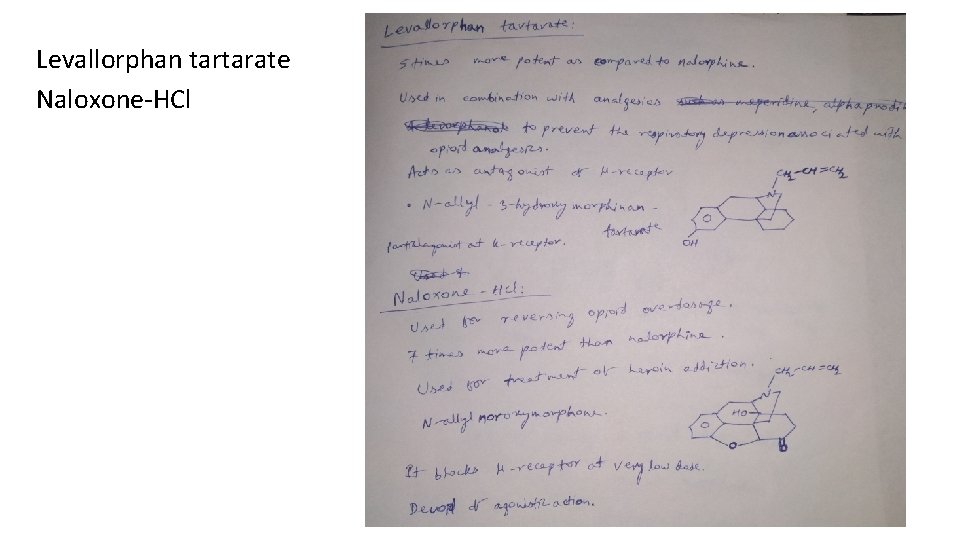 Levallorphan tartarate
Naloxone-HCl
Levallorphan tartarate:
5 times more potent as compared to nalorphine.
Used in combination with analgesics such as meperidine, alphaprodi
to prevent the respiratory depression associated with
opioid analgesics.
Acts as antagonist of μ-receptor
CH2-CH=CH2
• N-allyl-3-hydroxy morphinan - tartarate
N
OH
Partial agonist at κ-receptor.
Naloxone-HCl:
Used for reversing opioid overdosage.
7 times more potent than nalorphine.
Used for treatment of heroin addiction.
CH2-CH=CH2
N-allyl noroxymorphone.
N
HO
O
O
It blocks μ-receptor at very low dose.
Devoid of agonistic action.